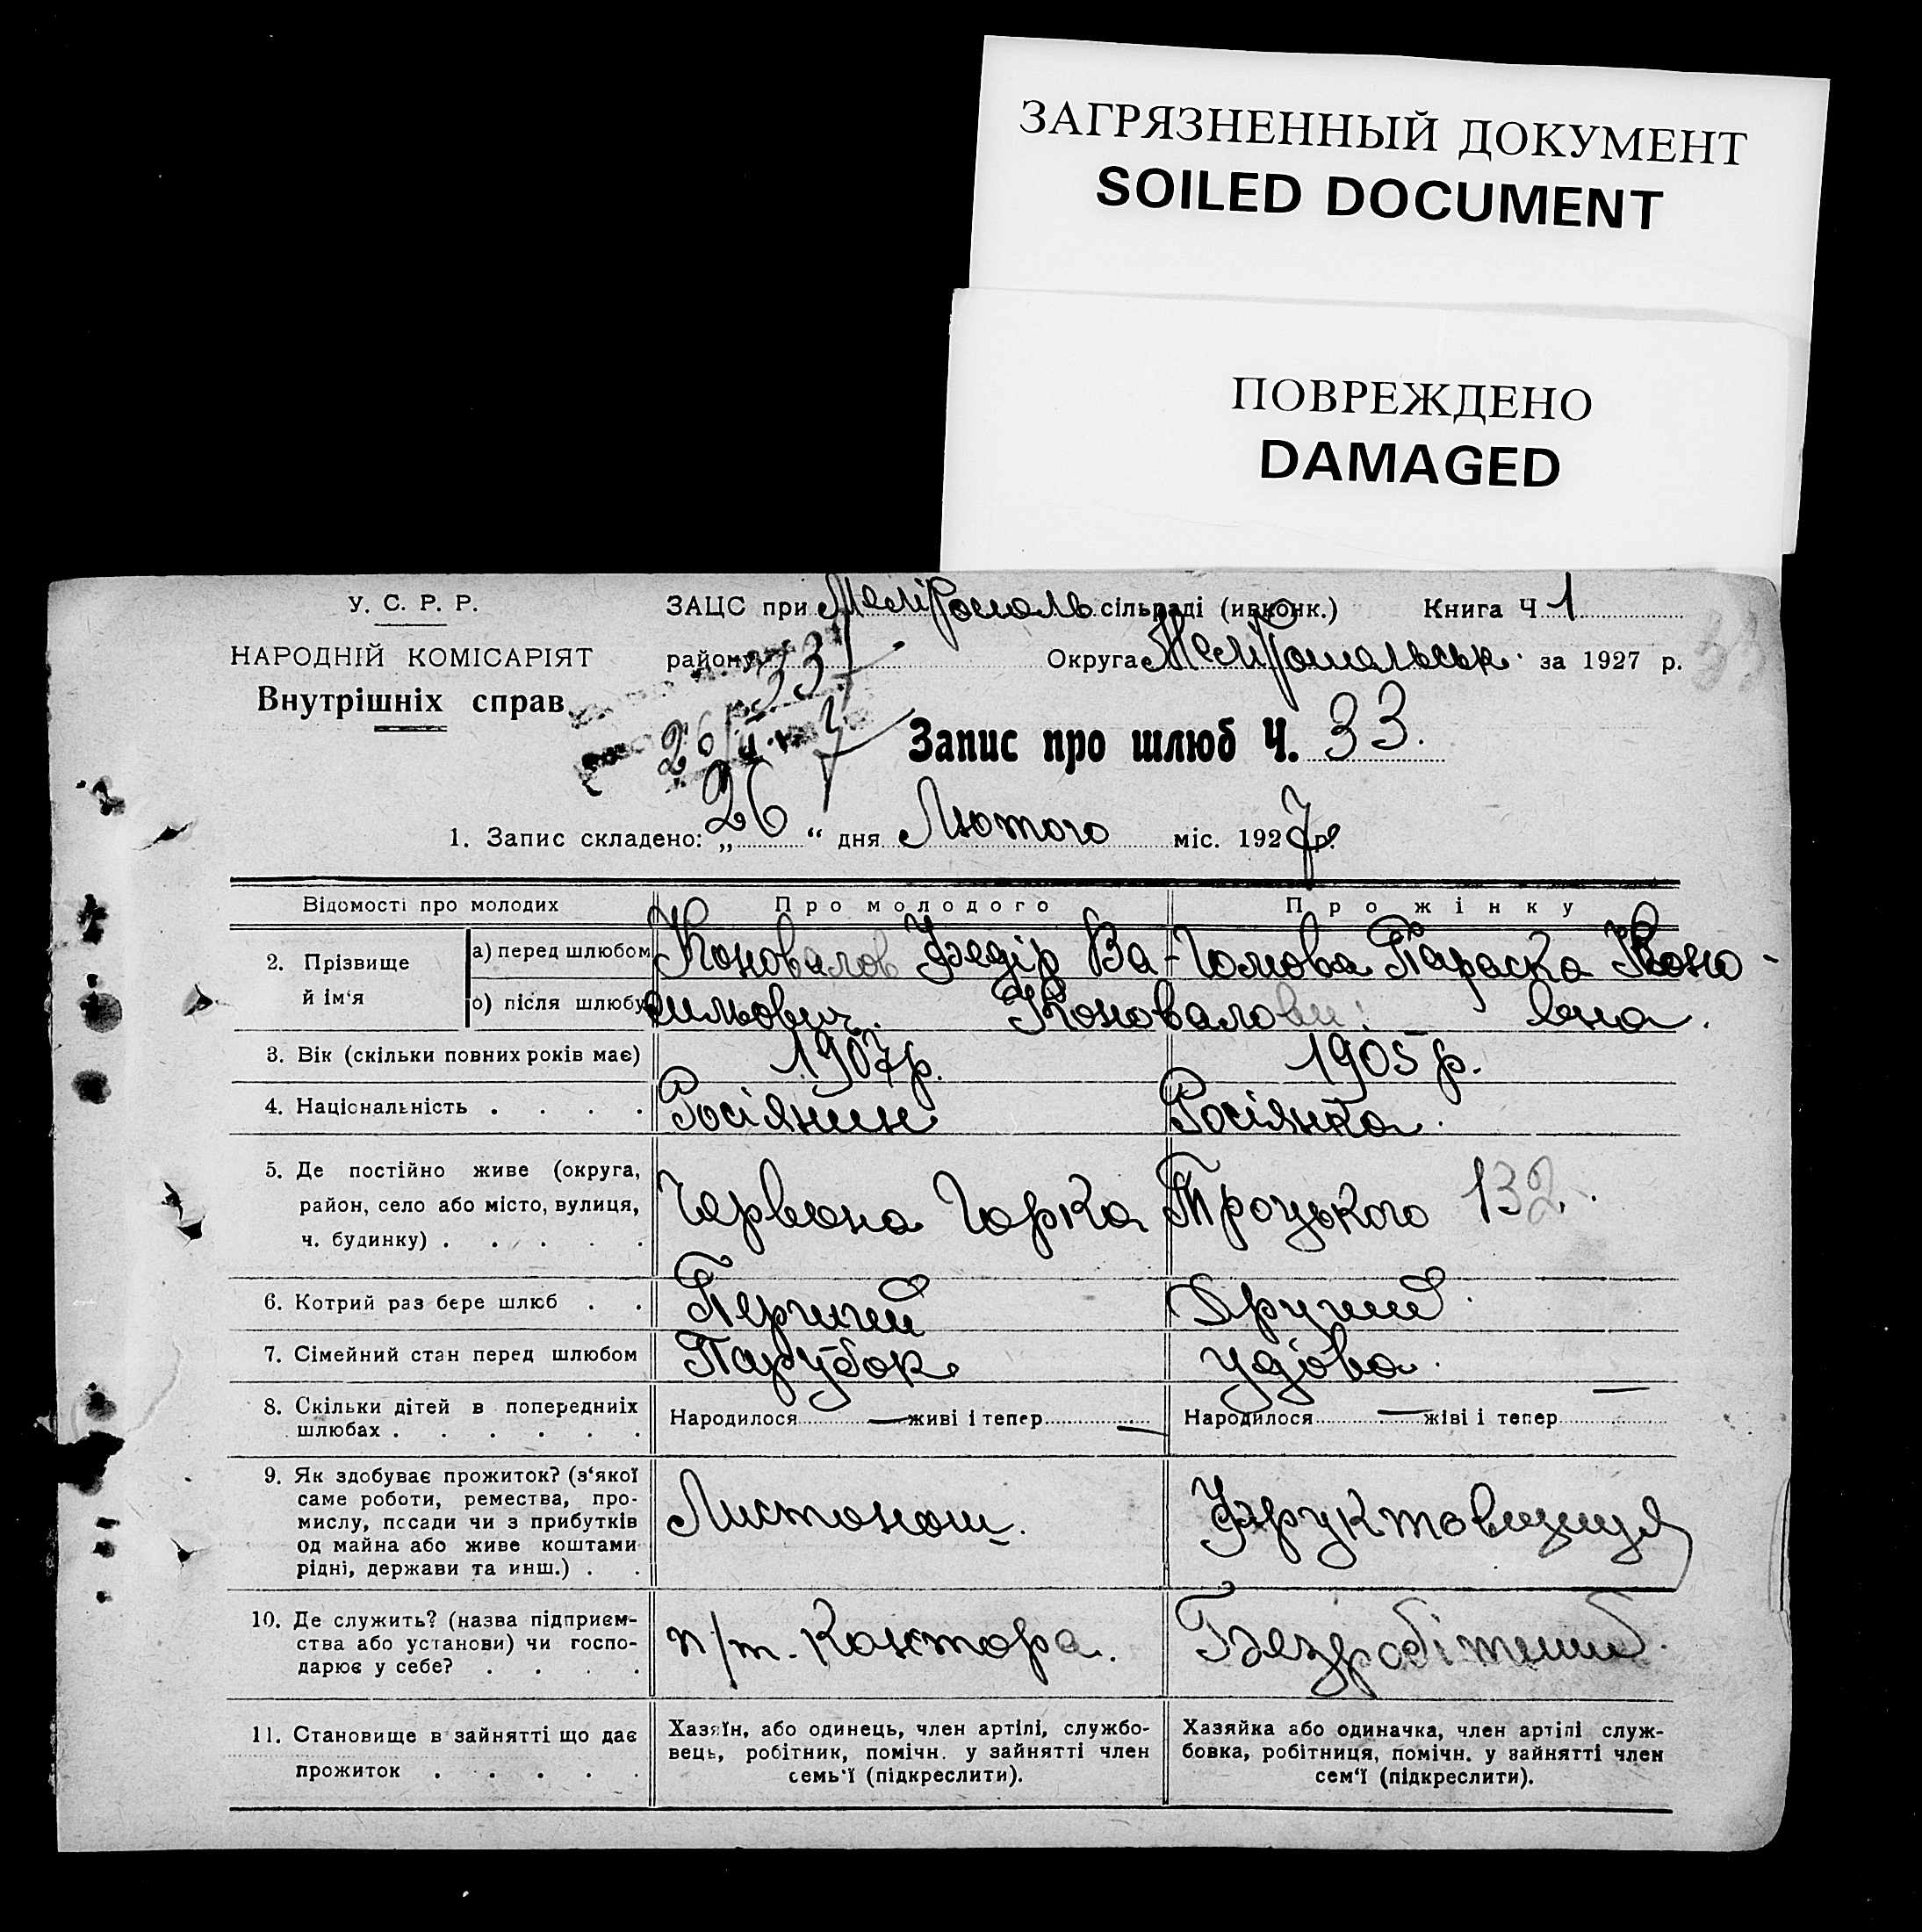 ЗАГРЯЗНЕННЫЙ ДОКУМЕНТ
SOILED DOCUMENT
ПОВРЕЖДЕНО
DAMAGED
У. С. Р. Р.
НАРОДНІЙ КОМІСАРІЯТ
Внутрішніх справ
ЗАЦС при Мелітополь сільраді (инконк.) Книга Ч 1
району Округа Мелітопольськ. за 1927 р.
33
33
26/II 27
Запис про шлюб Ч. 33.
1. Запис складено: „26“ дня Лютого міс. 1927 р.
Відомості про молодих Про молодого Про жінку
2. Прізвище й ім‘я
а) перед шлюбом Коновалов Федір Ва- Гомова Параска Коно-
о) після шлюбу сильович. Коновалови. вна.
3. Вік (скільки повних років має) 1907 р. 1905 р.
4. Національність . . . . Росіянин Росіянка.
5. Де постійно живе (округа,
район, село або місто, вулиця,
ч. будинку) . . . . . Червона Горка Троцького 132.
6. Котрий раз бере шлюб . . Перший Другий
7. Сімейний стан перед шлюбом Парубок удова.
8. Скільки дітей в попередніх
шлюбах . . . . . . Народилося — живі і тепер — Народилося — жіві і тепер —
9. Як здобуває прожиток? (з‘якої
саме роботи, ремества, про-
мислу, посади чи з прибутків
од майна або живе коштами
рідні, держави та инш.) . . Листонош. Фруктовщиця
10. Де служить? (назва підприєм-
ства або установи) чи госпо-
дарює у себе? . . . . п/т. Контора. Безробітний.
11. Становище в зайнятті що дає
прожиток . . . . .
Хазяїн, або одинець, член артілі, службо-
вець, робітник, помічн. у зайнятті член
семь‘ї (підкреслити).
Хазяйка або одиначка, член артілі служ-
бовка, робітниця, помічн. у зайнятті член
сем‘ї (підкреслити).